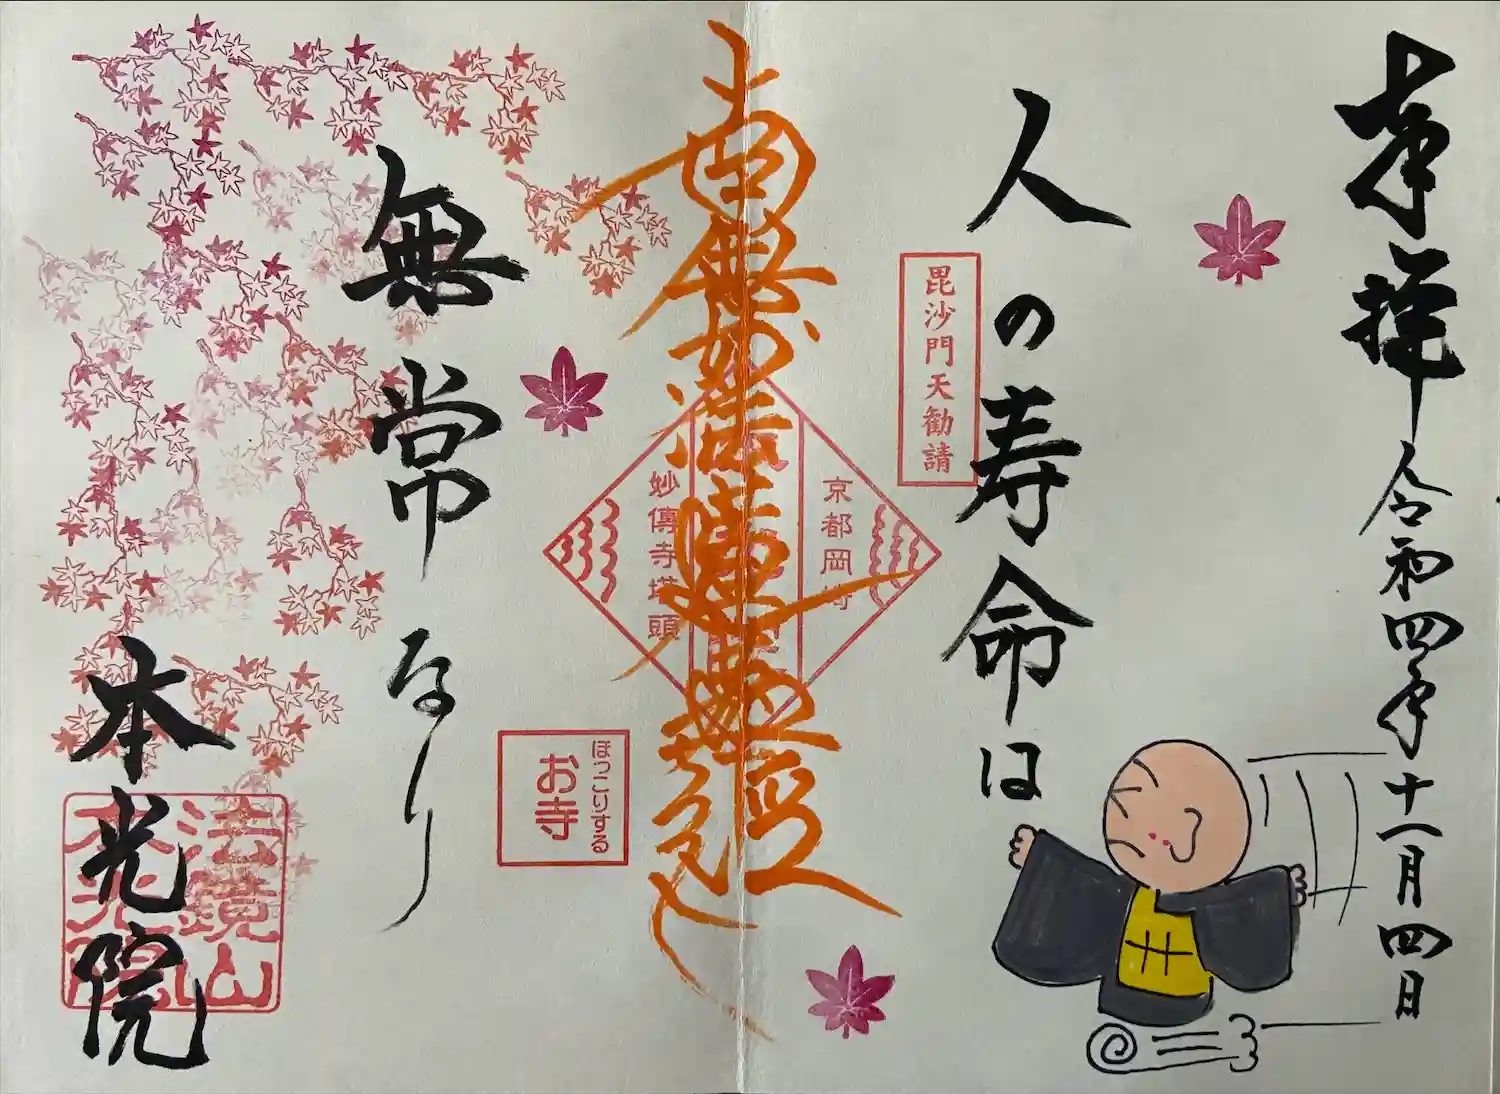 奉拝 令和四年十一月四日
人の寿命は
毘沙門天勧請
京都岡崎
南無妙法蓮華経
妙傳寺塔頭
ほっこりする
お寺
無常なり
本光院
法鏡山
本光院